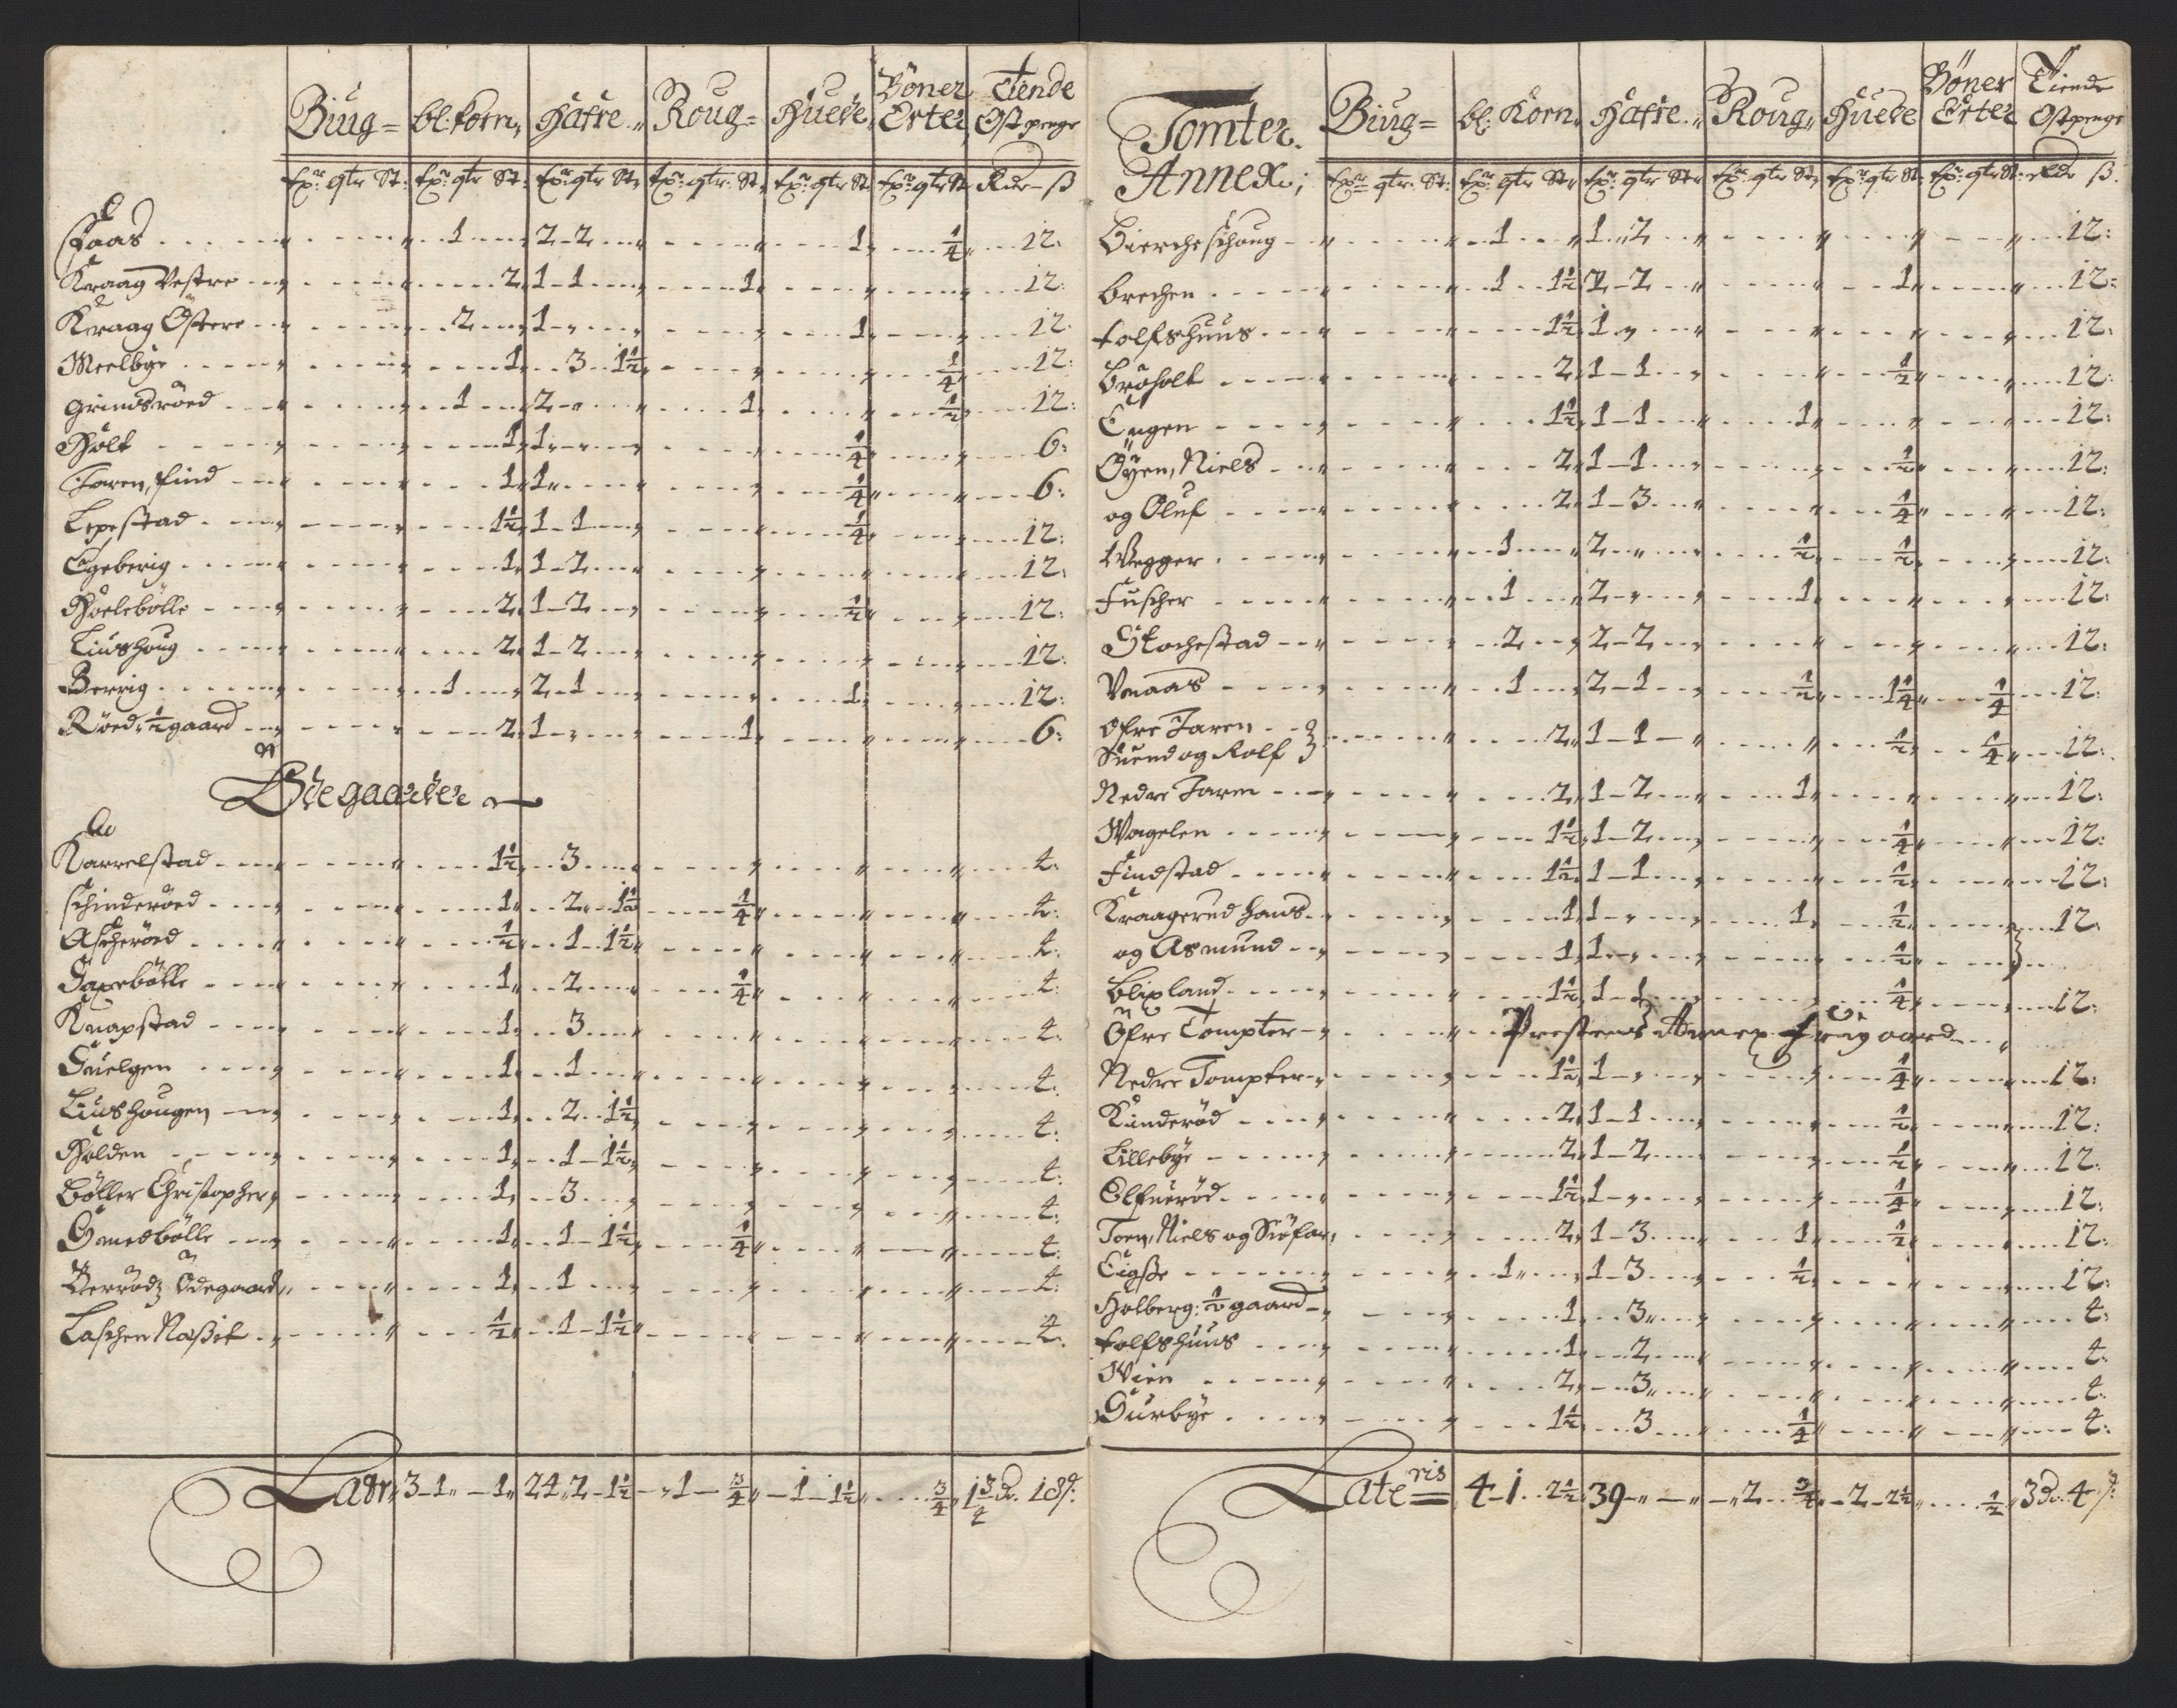 Biug= bl: korn, Hafre„ Roug= Huede, Böner Erter Tiende Ost penge
Exr: qtr St: Exr: qtr St: Exr: qtr St, Exr: qtr: St, Exr: qtr St Exr: qtr St Rdr – ß
Faas „ 1 „ 2 – 2 „ „ 1 „ 1/4 „ 12:
Kraag Vestre „ 2, 1 – 1 „ 1, „ „ 12:
Kraag Östere „ 2 „ 1 – „ „ 1, „ 12:
Meelbye „ 1, 3 – 1½ „ „ 1/4 „ 12:
Grimdsröed „ 1 „ 2 – „ 1, „ ½ „ 12:
Holt „ 1, 1 – „ „ 1/4 „ „ 6:
Jaren, find „ 1, 1 „ „ 1/4 „ „ 6:
Lepestad „ 1½, 1 – 1 „ „ 1/4 „ „ 12:
Egeberig „ 1, 1 – 2 „ „ „ „ 12:
Hoelebölle „ 2, 1 – 2 „ „ ½ „ „ 12:
Liushoug „ 2, 1 – 2 „ „ „ „ 12:
Berrig „ 1 „ 2 – 1 „ „ 1, „ 12:
Röed, ½ gaard „ 2, 1 – „ 1, „ „ 6:
Ödegaarder
Karrelstad „ 1½, 3 „ „ „ „ 4:
Schinderöed „ 1, 2 – 1½ 1/4 „ „ „ 4:
Ascheröed „ ½ „ 1 – 1½ „ „ „ „ 4:
Saxebölle „ 1, 2 „ 1/4 „ „ „ 4:
Knapstad „ 1, 3 „ „ „ „ 4:
Suelgen „ 1, 1 „ „ „ „ 4:
Liushougen „ 1, 2 – 1½ „ „ „ „ 4:
Holden „ 1, 1 – 1½ „ „ „ „ 4:
Böller Christopher, „ 1, 3 „ „ „ „ 4:
Smedbölle „ 1, 1 – 1½ 1/4 „ „ „ 4:
Berrödz Ödegaard, „ 1, 1 „ „ „ „ 4:
Laschen Naßit „ ½ „ 1 – 1½ „ „ „ „ 4:
Latr: 3 – 1 „ – 1 „ 24, 2 – 1½ – „ 1 – 3/4 „ – 1 – 1½ „ 3/4 „ 13 dr. 18 ß:
Tomter. Annex; Biug= bl: Korn„ Hafre„ Roug„ Huede Böner Erter Tiende Ost penge
Exr: qtr: St: Exr: qtr St„ Exr: qtr St„ Exr: qtr St, Exr: qtr St, Exr: qtr St: Rdr ß.
Biercheschoug „ 1 „ 1 „ 2 „ „ „ „ 12:
Brechen „ 1 – 1½ 2 – 2 „ „ 1, „ 12:
Tolfshuus „ 1½ 1 „ „ „ „ 12:
Broholt „ 2, 1 – 1 „ „ ½ „ „ 12:
Engen „ 1½ 1 – 1 „ 1, „ „ 12:
Öyen, Niels „ 2, 1 – 1 „ „ ½ „ „ 12:
og Oluf „ 2, 1 – 3 „ „ 1/4 „ „ 12:
Vegger „ 1 „ 2 – „ ½ „ ½ „ „ 12:
Fuscher „ 1 „ 2 – „ 1, „ „ 12:
Stochestad „ 2 „ 2 – 2 „ „ „ „ 12:
Vnaas „ 1 „ 2 – 1 „ ½ „ 1¼ „ 1/4 12:
Ofre Jaren
Suend og Rolf } „ 2, 1 – 1 – „ „ ½ „ 1/4 „ 12:
Nedre Jaren „ 2, 1 – 2 „ 1, „ „ 12:
Wagelen „ 1½ 1 – 2 „ „ 1/4 „ „ 12:
Findstad „ 1½ 1 – 1 „ „ ½ „ „ 12:
Kraagerud Hans „ 1, 1 – „ 1, ½ „ „ 12:
og Asmund „ 1, 1 – „ „ ½ „ „ }
Blixland „ 1½ 1 – 1 „ „ 1/4 „ „ 12:
Öfre Tompter – „ „ Prestens Annex frig gaard „
Nedre Tompter „ 1½ 1 – „ „ 1/4 „ „ 12:
Kinderöd „ 2, 1 – 1 „ „ ½ „ „ 12:
Lillebye „ 2, 1 – 2 „ „ ½ „ „ 12:
Olfueröd „ 1½ 1 – „ „ 1/4 „ „ 12:
Toen, Niels og Siöfar, „ 2, 1 – 3 „ 1 „ ½ „ „ 12:
Eigße „ 1 „ 1 – 3 „ ½ „ „ „ 12:
Holberg: ½ gaard „ 1, 3 „ „ „ „ 4:
Tolfshuus „ 1, 2 „ „ „ „ 4:
Wien „ 2, 3 „ „ „ „ 4:
Surbye „ 1½ 3 „ 1/4 „ „ „ 4:
Lateris 4 – 1 – 2½ 39 – „ – „ – „ 2 – 3/4 „ – 2 – 2½ „ ½ „ 3 dr. 4 ß: